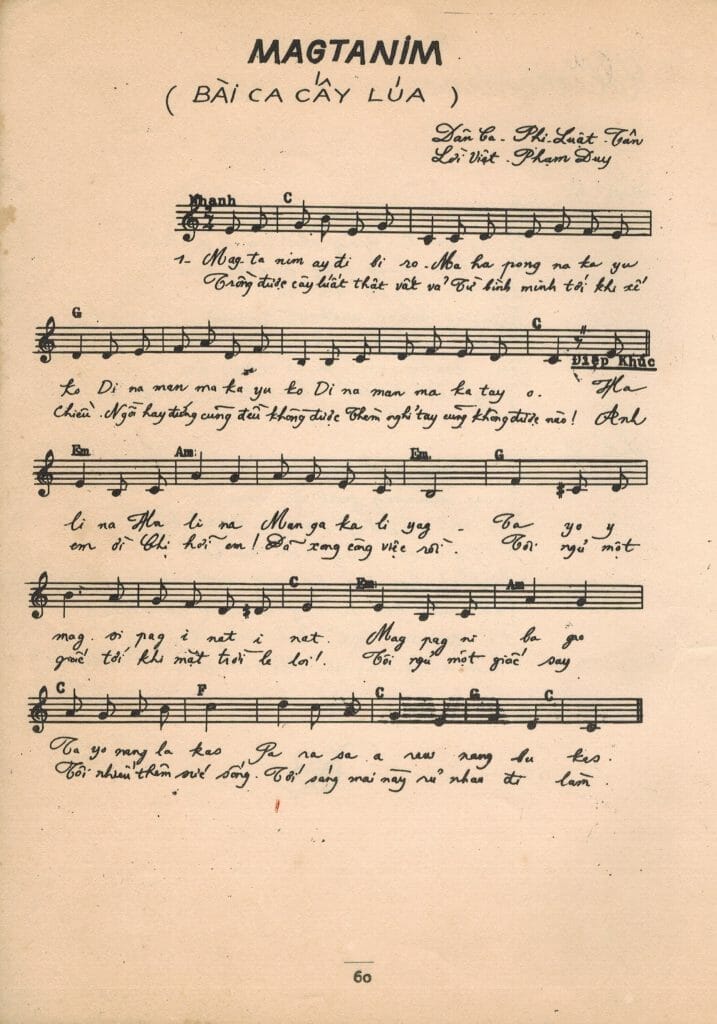 MAGTANIM
( BÀI CA CẤY LÚA )
Dân Ca - Phi-Luật-Tân
Lời Việt - Phạm Duy
Nhanh C
1- Mag-ta nim ay di bi ro - Ma ha pong na ka yu
Trồng được cây lúa thật vất vả Từ bình minh tới khi xế
G C
Điệp Khúc
ko Di na man ma ka yu ko Di na man ma ka tay o. Ha
chiều. Ngồi hay đứng cũng đều không được Thèm nghỉ tay cũng không được nào! Anh
Em Am Em G
li na Ha li na Man ga ka li yag - Ta yo y
em ơi Chị hỡi em! Đã xong công việc rồi. Tôi ngủ một
C Em Am
mag. si pag i nat i nat. Mag pag ni ba go
giấc tới khi mặt trời le lói! Tôi ngủ một giấc say
C F C G C
Ta yo nang la kas Pa ra sa a raw nang bu kas.
Tôi nhiều thêm sức sống. Tới sáng mai này rủ nhau đi làm.
60